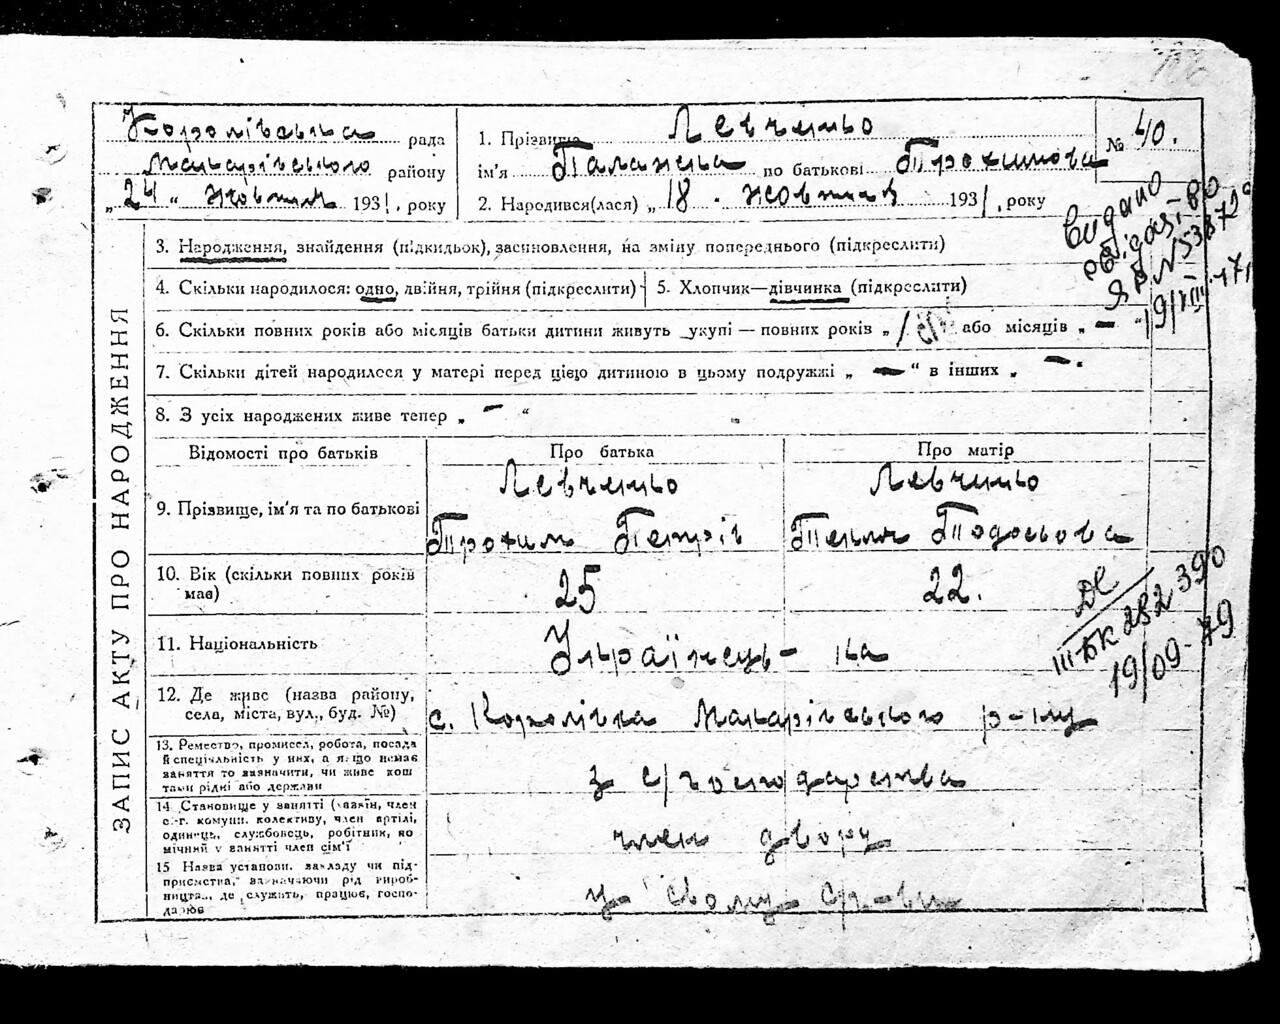 Королівська рада
Макарівського району
„24“ жовтня 1931, року
1. Прізвище Левченко
ім'я Палажка по батькові Трохимова
2. Народився(лася) „18. жовтня 1931, року
№ 40.
Видано
свідоцтво
19/VIII-71
ЗАПИС АКТУ ПРО НАРОДЖЕННЯ
3. Народження, знайдення (підкидьок), засиновлення, на зміну попереднього (підкреслити)
4. Скільки народилося: одно, двійня, трійня (підкреслити)
5. Хлопчик—дівчинка (підкреслити)
6. Скільки повних років або місяців батьки дитини живуть укупі — повних років „1 або місяців „—“
7. Скільки дітей народилося у матері перед цією дитиною в цьому подружжі „—“ в інших „—.
8. З усіх народжених живе тепер „—“
Відомості про батьків
Про батька
Про матір
9. Прізвище, ім'я та по батькові
Левченко
Трохим Петрів
Левченко
Текля Тодосьова
10. Вік (скільки повних років має)
25
22.
ІІІ БК 282390
19/09-79
11. Національність
Українець- ка
12. Де живе (назва району, села, міста, вул., буд. №)
с. Королівка Макарівського р-ну
13. Ремество, промисел, робота, посада
й спеціяльність у них, а якщо немає
заняття то зазначити, чи живе кош
тами рідні або держави
з с/господарства
14 Становище у занятті (хазяїн, член
с.-г. комуни, колективу, член артілі,
одинець, службовець, робітник, по
мічний у занятті член сім'ї
член двору
15 Назва установи, закладу чи під-
приємства, зазначаючи рід вироб-
ництва, де служить, працює, госпо-
дарює
у свому с/г-ві